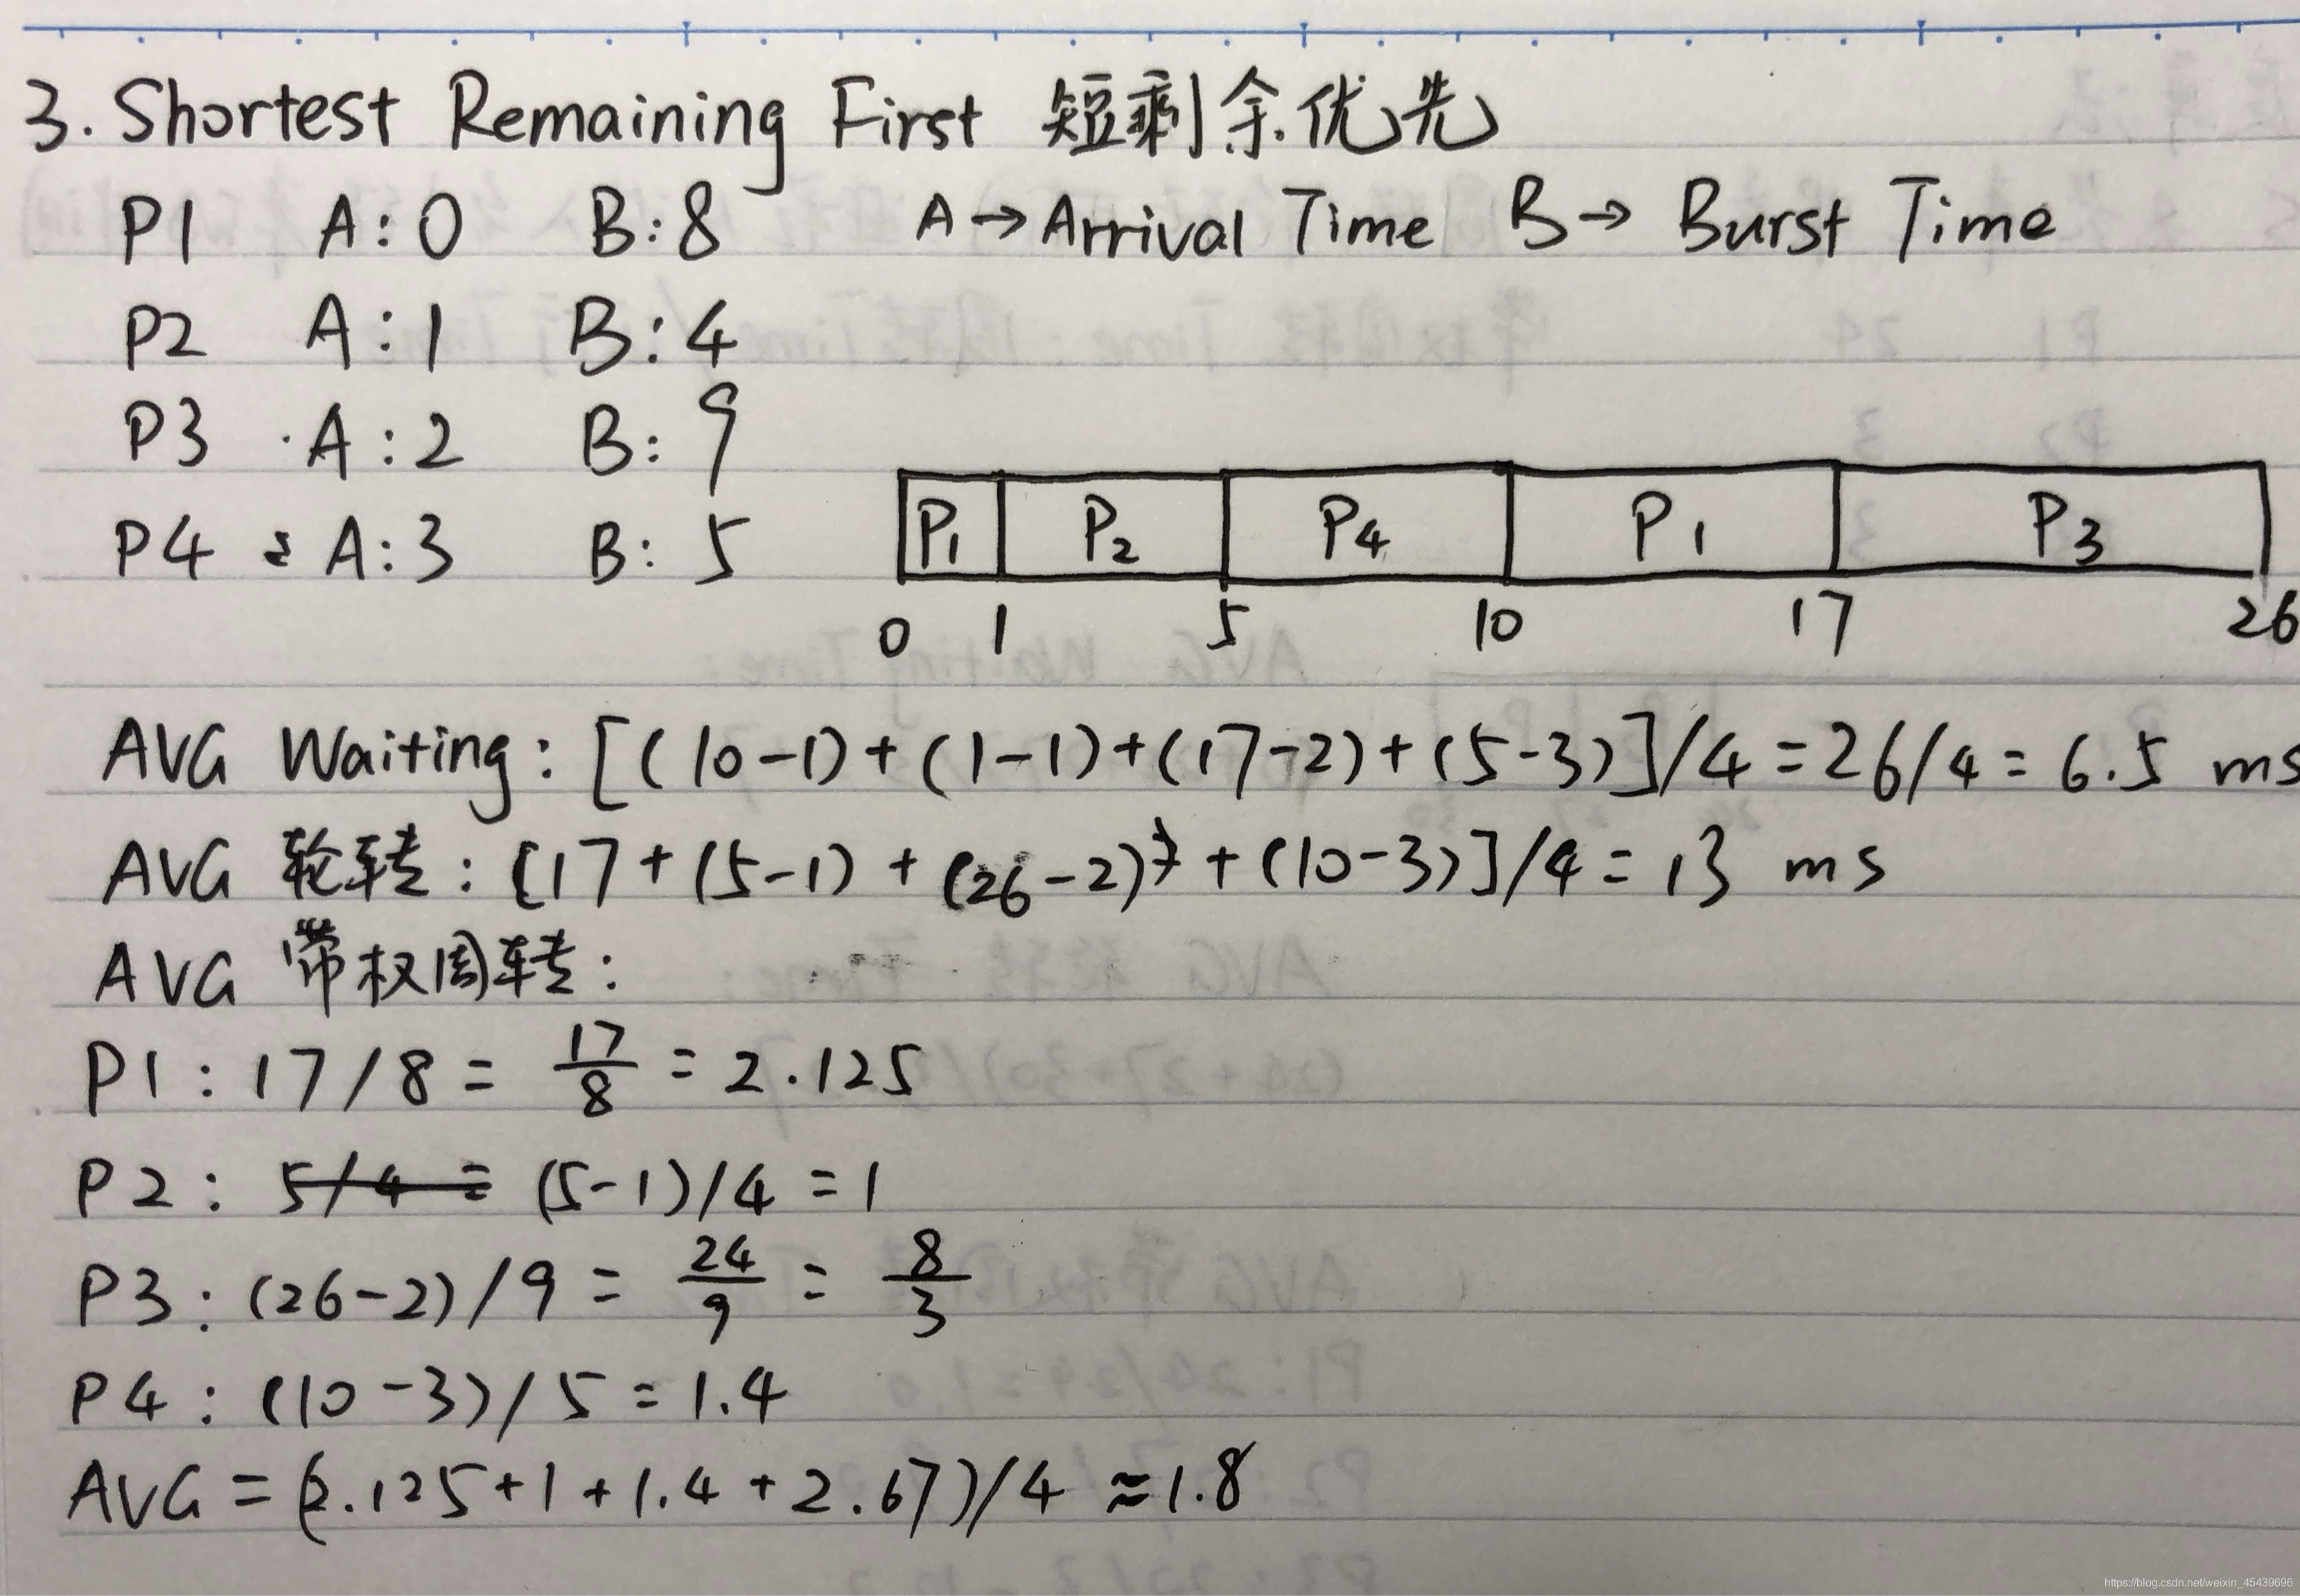 3. Shortest Remaining First 短剩余优先
P1 A:0 B:8 A→Arrival Time B→ Burst Time
P2 A:1 B:4
P3 A:2 B:9
P4 A:3 B:5
P1 P2 P4 P1 P3
0 1 5 10 17 26
AVG Waiting: [(10-1)+(1-1)+(17-2)+(5-3)]/4=26/4=6.5 ms
AVG 轮转: [17+(5-1)+(26-2)+(10-3)]/4=13 ms
AVG 带权周转:
P1: 17/8 = 17/8 = 2.125
P2: 5/4= (5-1)/4=1
P3: (26-2)/9 = 24/9 = 8/3
P4: (10-3)/5=1.4
AVG=(2.125+1+1.4+2.67)/4≈1.8
https://blog.csdn.net/weixin_45439696